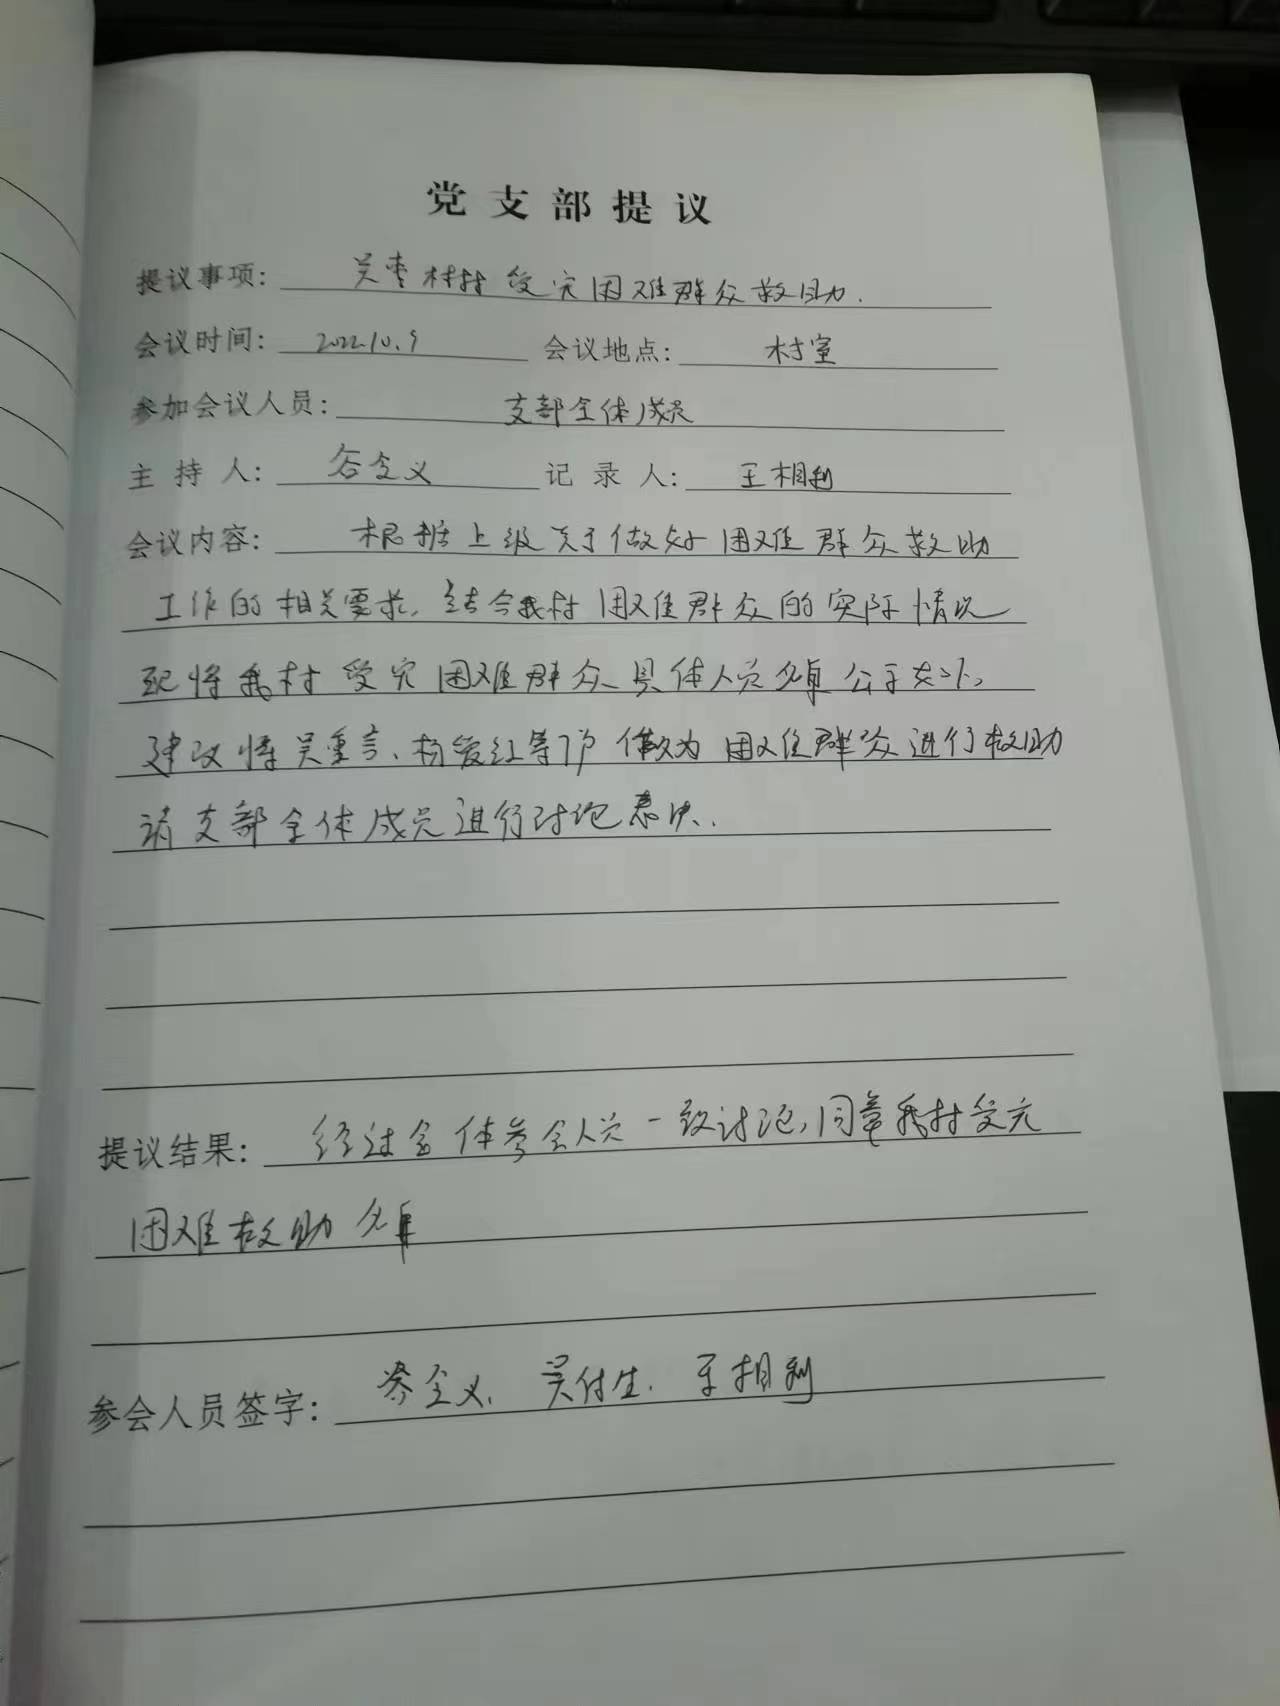 党支部提议
提议事项: 吴枣村村受灾困难群众救助.
会议时间: 2022.10.9 会议地点: 村室
参加会议人员: 支部全体成员
主持人: 谷金义 记录人: 王相利
会议内容: 根据上级关于做好困难群众救助
工作的相关要求,结合我村困难群众的实际情况
现将我村受灾困难群众具体人员名单公示如下,
建议将吴重言、杨爱红等7户做为困难群众进行救助
请支部全体成员进行讨论表决.
提议结果: 经过全体参会人员一致讨论,同意我村受灾
困难救助名单
参会人员签字: 谷金义、吴付生.王相利